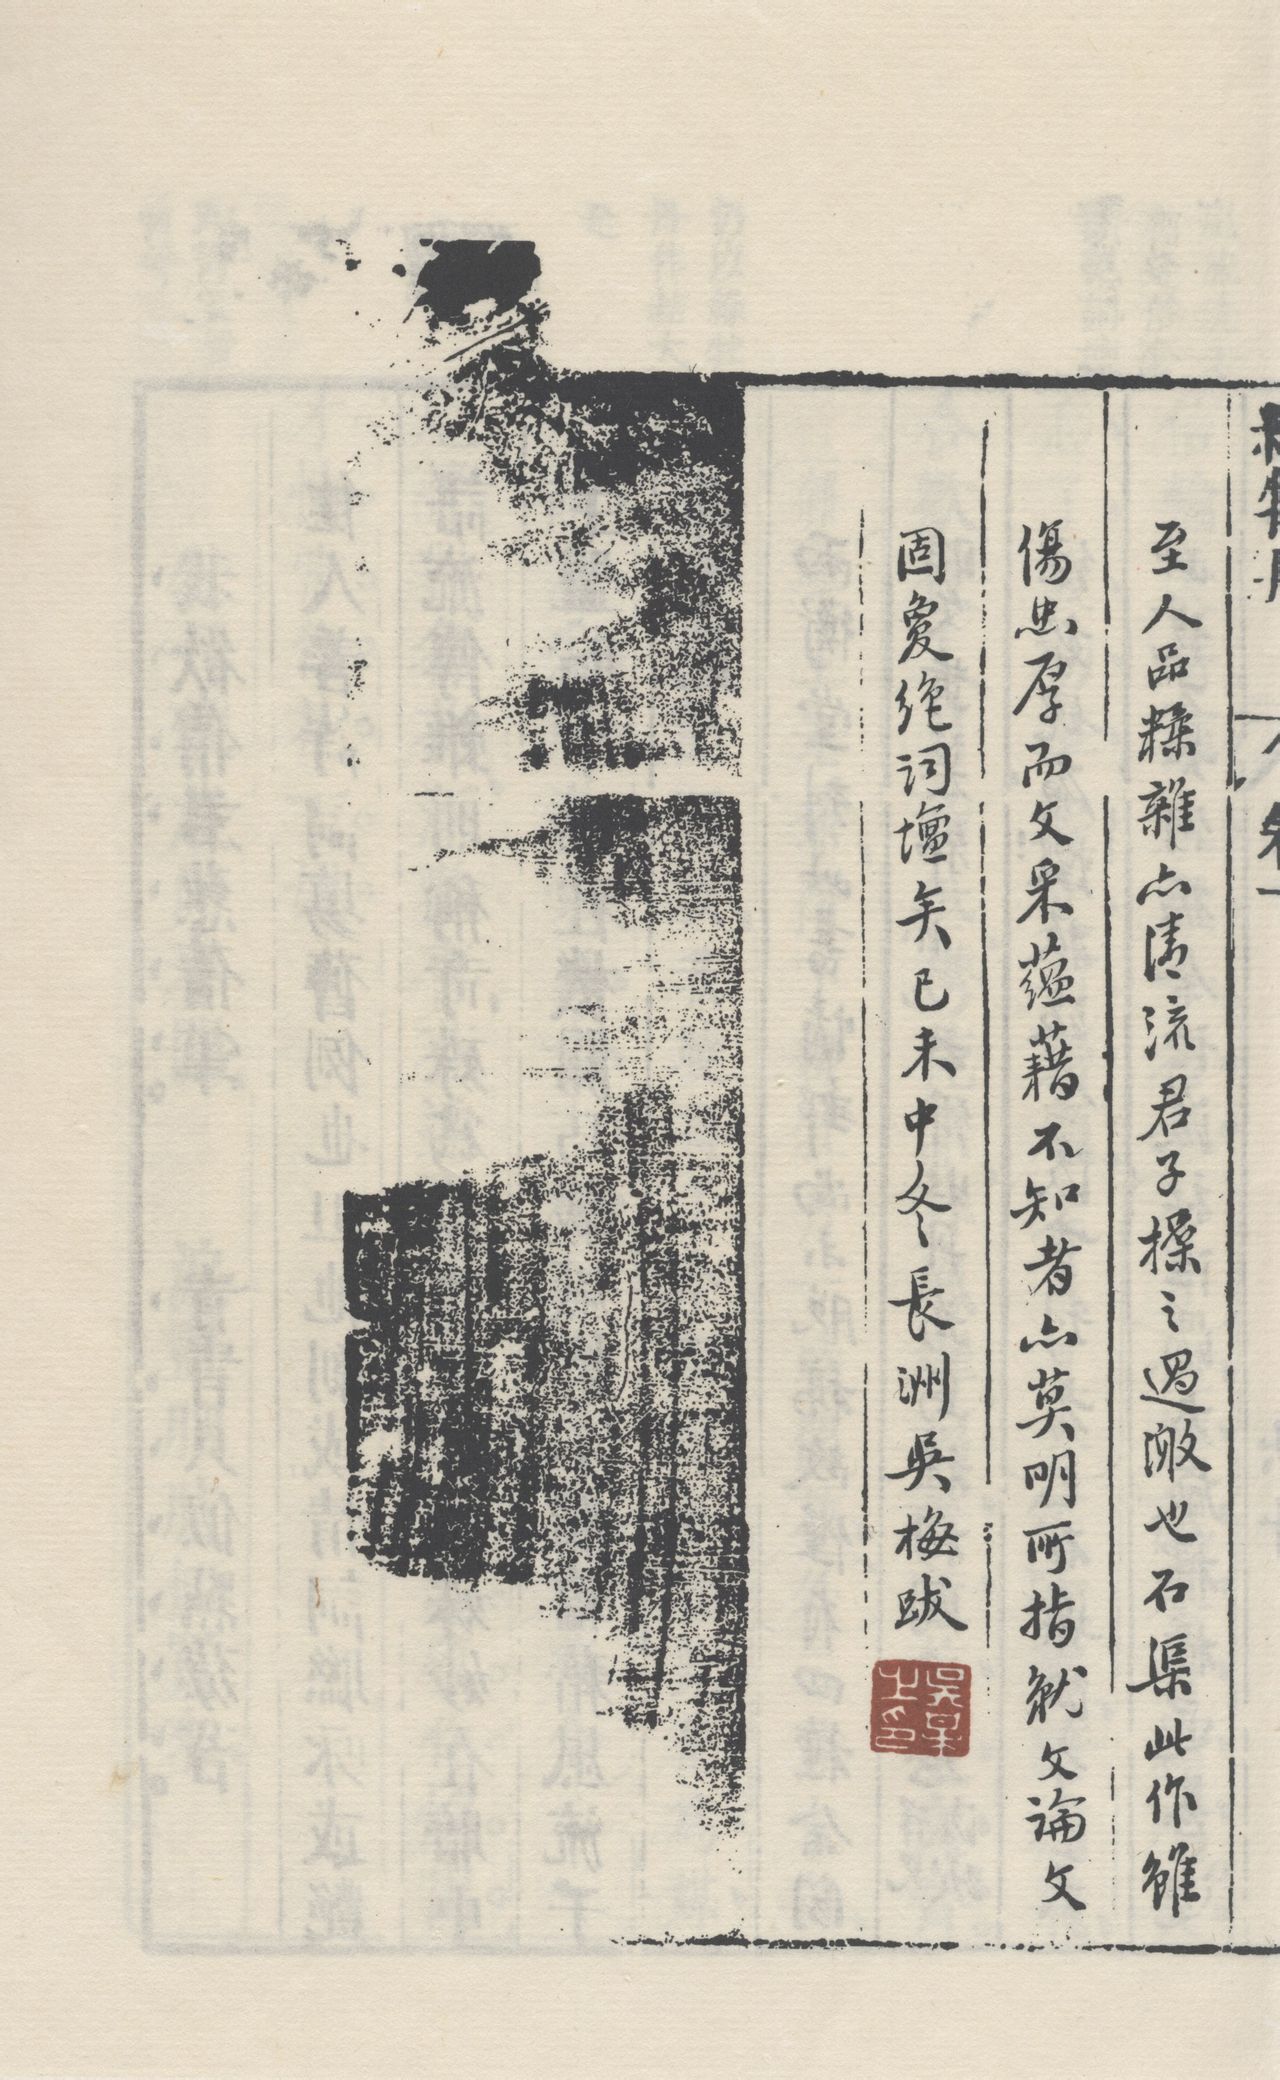 至人品糅雜亦清流君子操之過激也石渠此作雖
傷忠厚而文采蘊藉不知者亦莫明所指就文論文
固敻絶詞壇矣己未中冬長洲吳梅跋